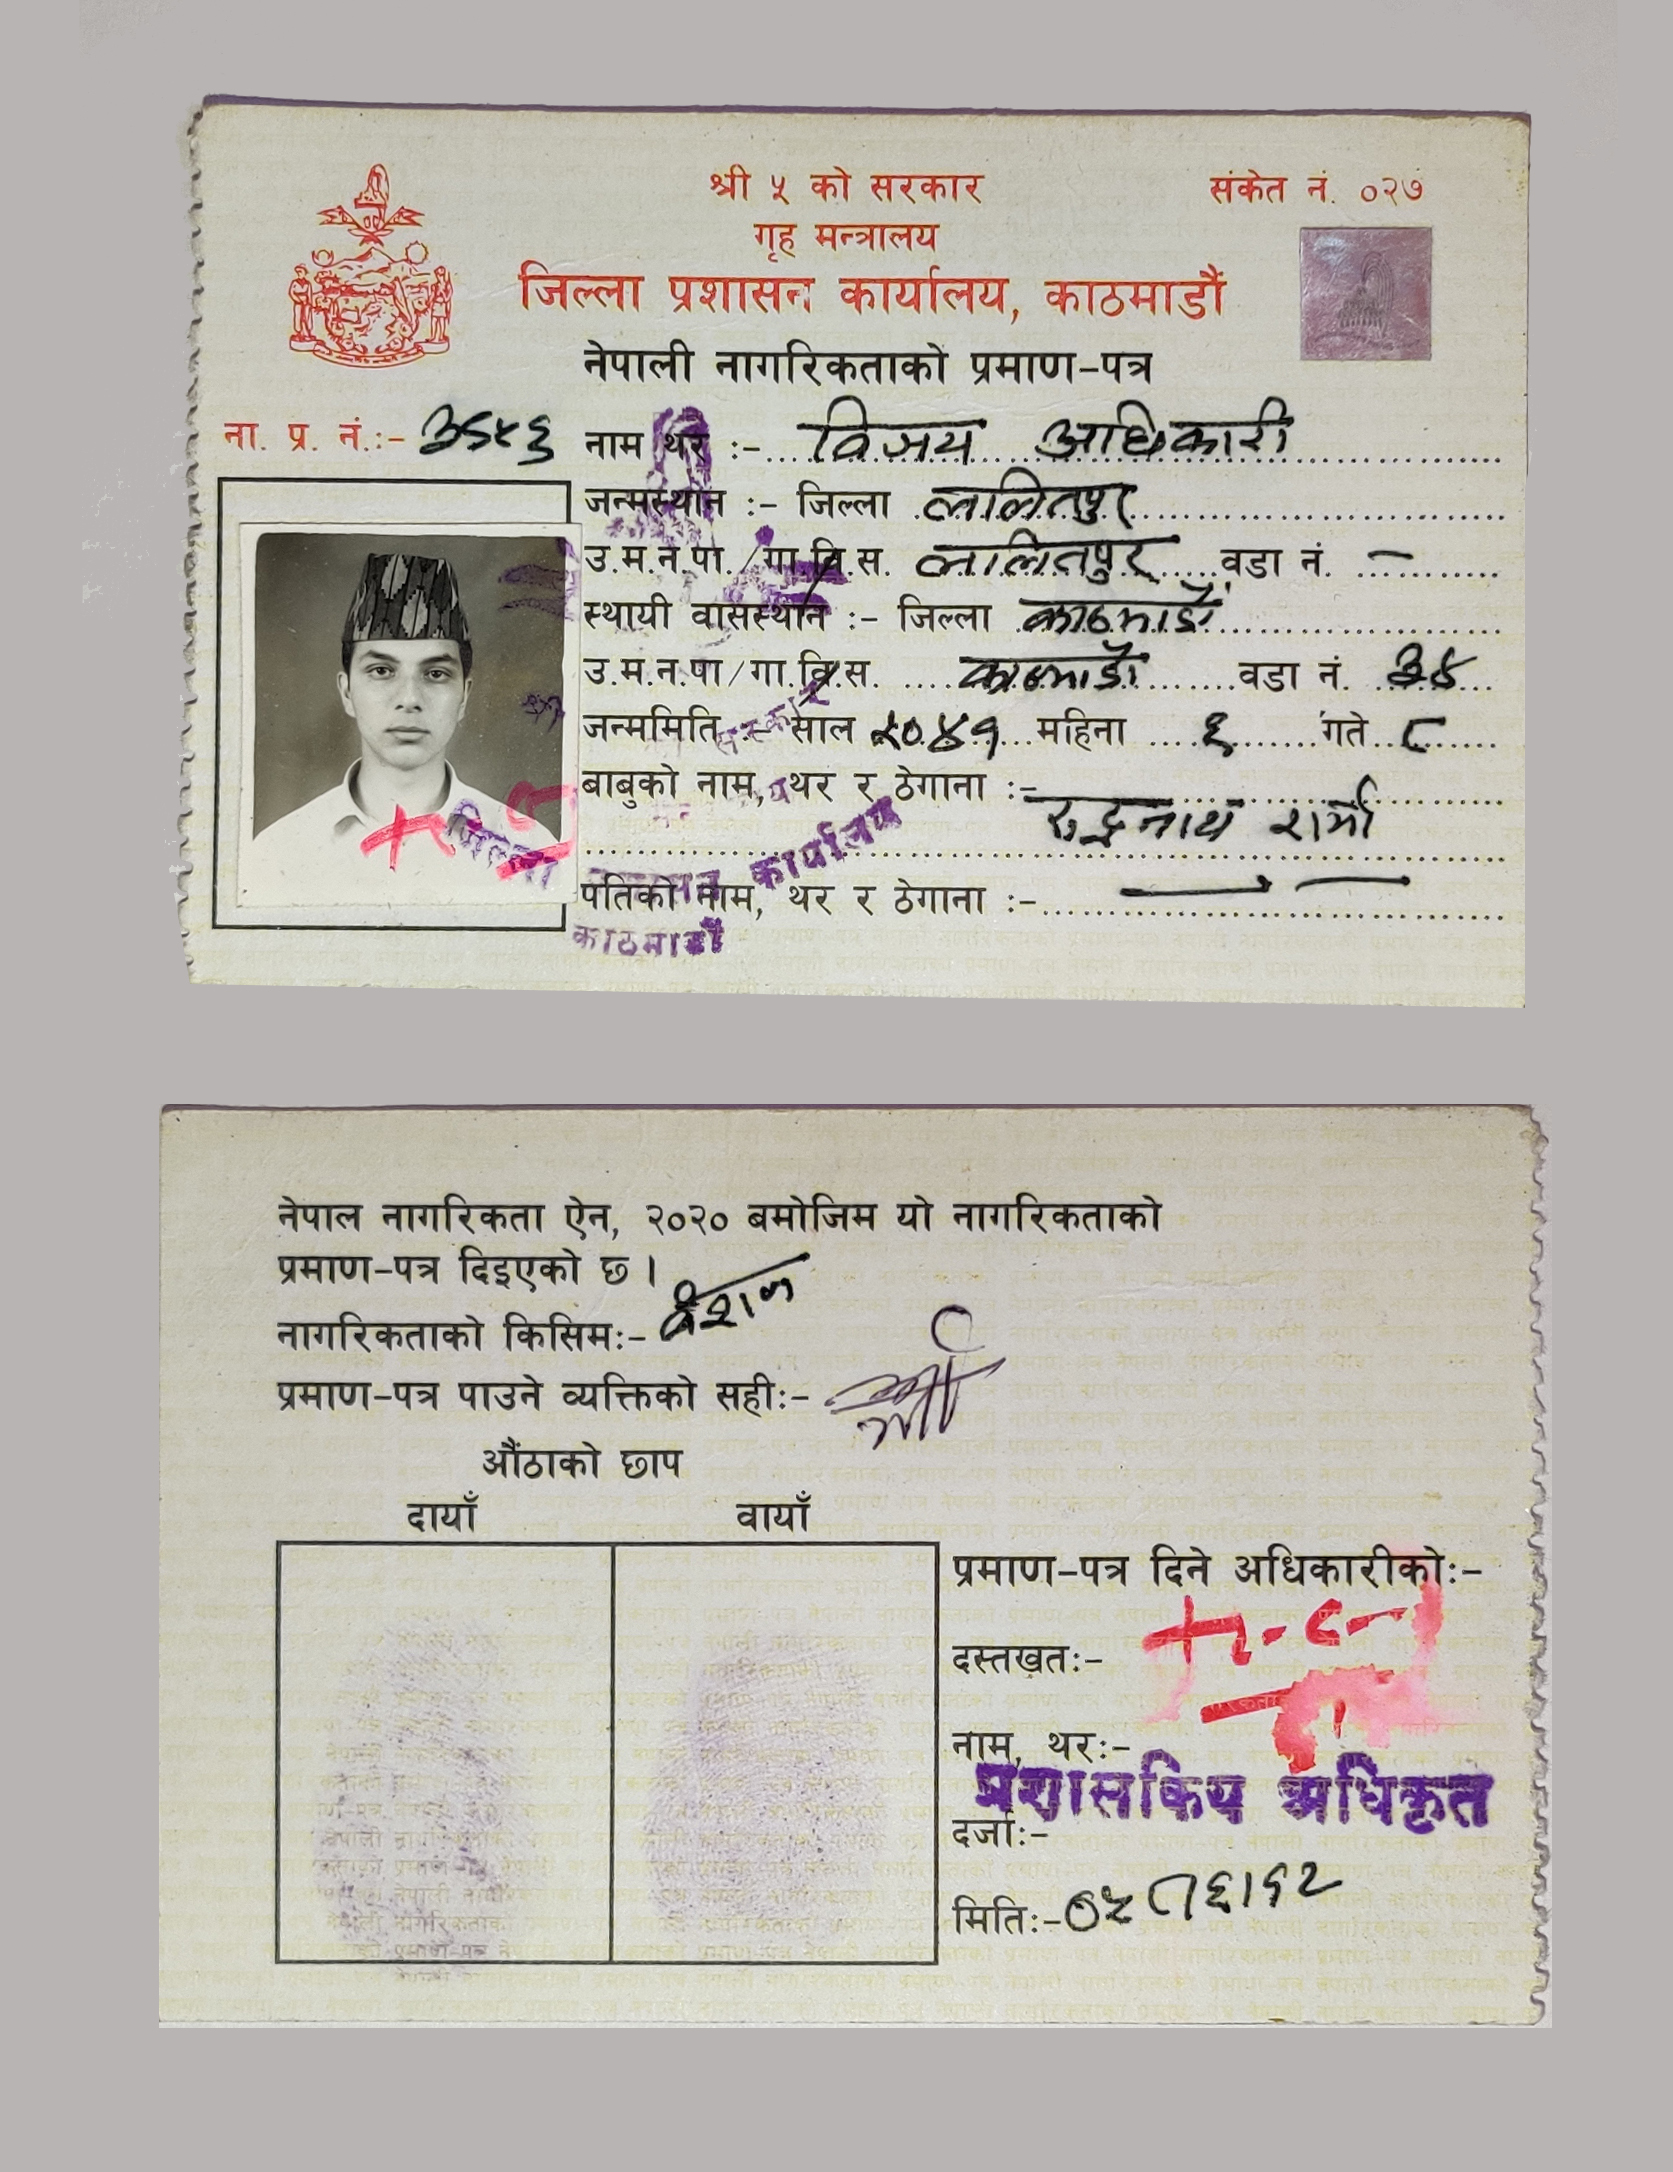 श्री ५ को सरकार
संकेत नं. ०२७
गृह मन्त्रालय
जिल्ला प्रशासन कार्यालय, काठमाडौं
नेपाली नागरिकताको प्रमाण-पत्र
ना. प्र. नं.:-
नाम थर :- विजय अधिकारी
जन्मस्थान :- जिल्ला ललितपुर
उ.म.न.पा./गा.वि.स. ललितपुर वडा नं. -
स्थायी वासस्थान :- जिल्ला काठमाडौं
उ.म.न.पा/गा.वि.स. काठमाडौं वडा नं. ३४
जन्ममिति :- साल २०४१ महिना ६ गते ८
बाबुको नाम, थर र ठेगाना :-
रुद्रनाथ शर्मा
पतिको नाम, थर र ठेगाना :-
जिल्ला प्रशासन कार्यालय
काठमाडौं
नेपाल नागरिकता ऐन, २०२० बमोजिम यो नागरिकताको
प्रमाण-पत्र दिइएको छ ।
नागरिकताको किसिम:- वंशज
प्रमाण-पत्र पाउने व्यक्तिको सही:-
औंठाको छाप
दायाँ वायाँ
प्रमाण-पत्र दिने अधिकारीको:-
दस्तखत:-
नाम, थर:-
प्रशासकिय अधिकृत
दर्जा:-
मिति:-